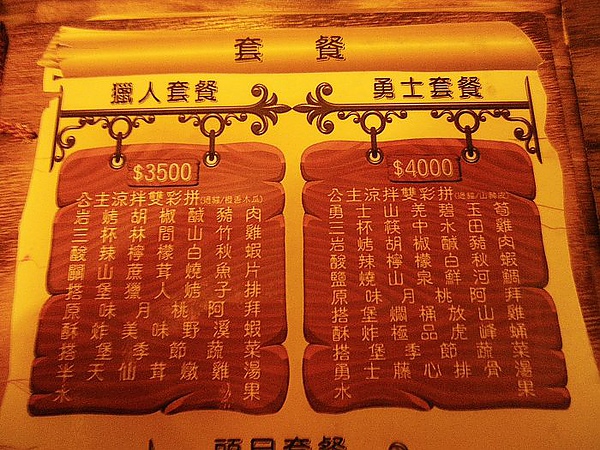 套餐
獵人套餐
$3500
公主涼拌雙彩拼(過貓/橙香木瓜)
岩烤胡椒鹹豬肉
三杯林間山竹雞
酸辣檸檬白秋蝦
關山蔗茸燒魚片
搭堡獵人烤子排
原味月桃阿拜
酥炸美味野溪蝦
搭堡季節蔬菜
半天仙茸燉雞湯
水果
勇士套餐
$4000
公主涼拌雙彩拼(過貓/山蘇皮)
勇士山羌碧玉筍
三杯筷中水田雞
岩烤胡椒鹹豬肉
酸辣檸檬白秋蝦
鹽燒山泉鮮河鯛
原味月桃阿拜
搭堡燜桶放山雞
酥炸極品虎峰蛹
搭堡季節蔬菜
勇士藤心排骨湯
水果
頭目套餐